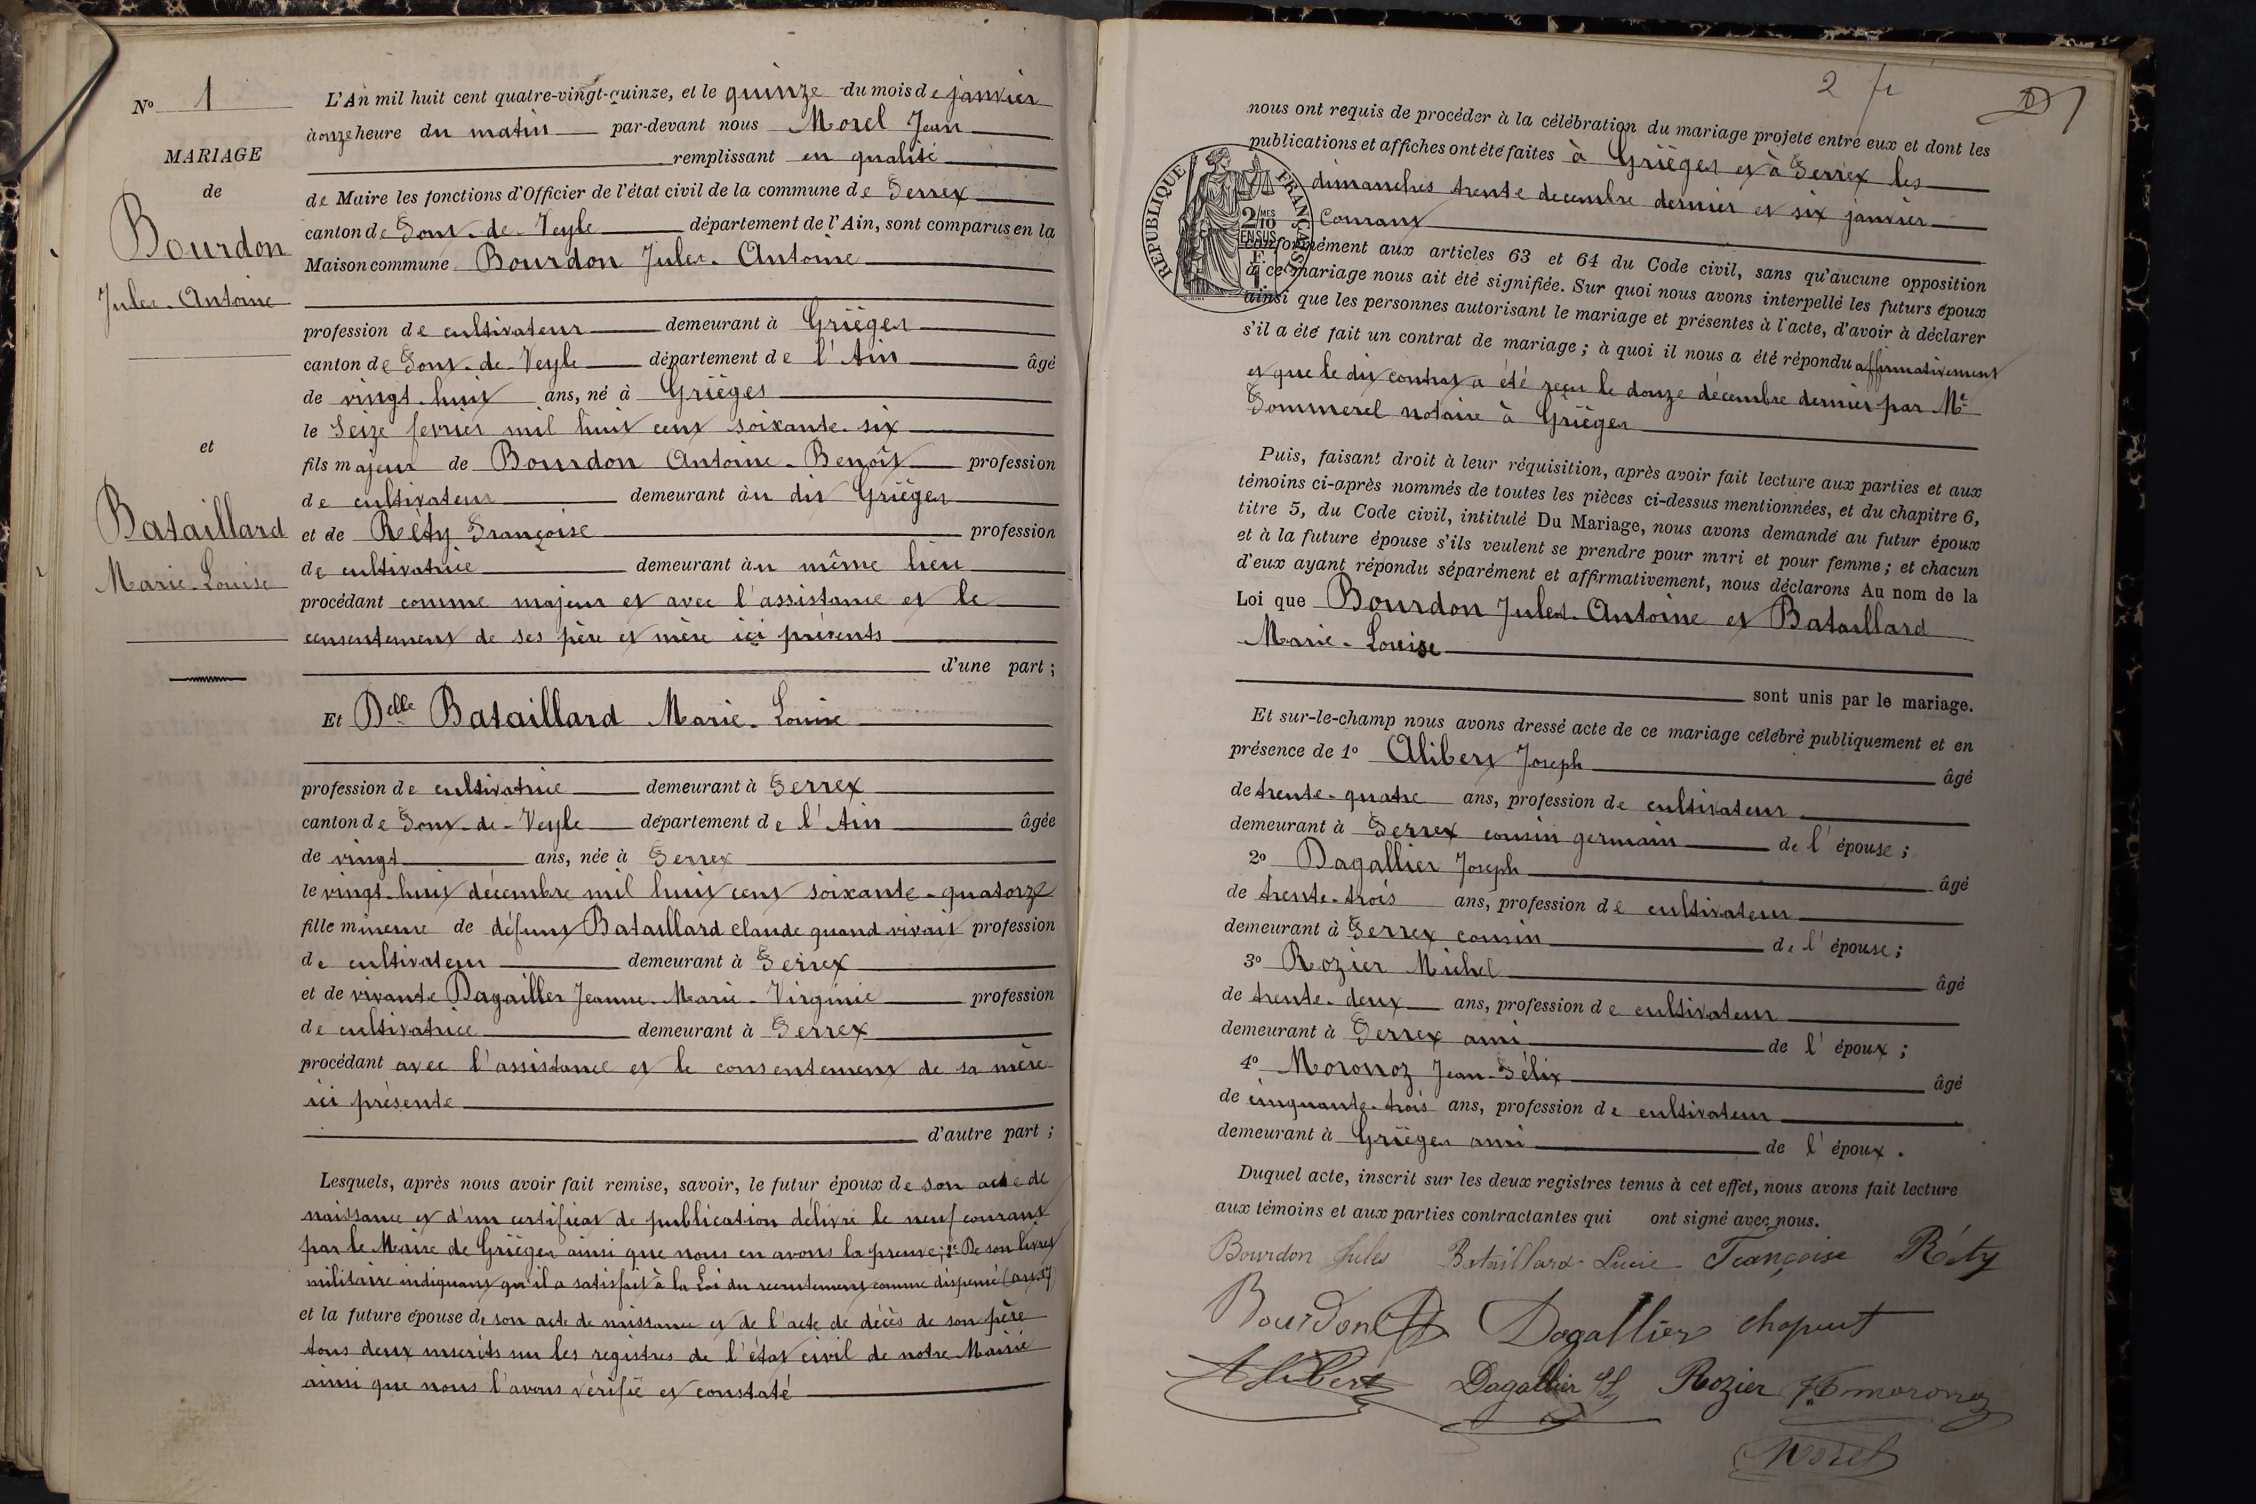 No 1
MARIAGE
de
Bourdon
Jules-Antoine
et
Bataillard
Marie-Louise
L'An mil huit cent quatre-vingt-quinze, et le quinze du mois de janvier
à onze heure du matin par-devant nous Morel Jean
remplissant en qualité
de Maire les fonctions d'Officier de l'état civil de la commune de Perrex
canton de Pont-de-Veyle département de l'Ain, sont comparus en la
Maison commune Bourdon Jules-Antoine
profession de cultivateur demeurant à Grièges
canton de Pont-de-Veyle département de l'Ain âgé
de vingt-huit ans, né à Grièges
le Seize fevrier mil huit cent soixante-six
fils majeur de Bourdon Antoine-Benoît profession
de cultivateur demeurant àu dit Grièges
et de Réty Françoise profession
de cultivatrice demeurant àu même lieu
procédant comme majeur et avec l'assistance et le
consentement de ses père et mère ici présents
d'une part ;
Et Delle Bataillard Marie-Louise
profession de cultivatrice demeurant à Perrex
canton de Pont-de-Veyle département de l'Ain âgée
de vingt ans, née à Perrex
le vingt-huit décembre mil huit cent soixante-quatorze
fille mineure de défunt Bataillard Claude quand vivait profession
de cultivateur demeurant à Perrex
et de vivante Dagallier Jeanne-Marie-Virginie profession
de cultivatrice demeurant à Perrex
procédant avec l'assistance et le consentement de sa mère
ici présente
d'autre part ;
Lesquels, après nous avoir fait remise, savoir, le futur époux de son acte de
naissance et d'un certificat de publication délivré le neuf courant
par le Maire de Grièges ainsi que nous en avons la preuve ; 2e De son livret
militaire indiquant qu'il a satisfait à la Loi du recrutement comme dispensé (art. 17)
et la future épouse de son acte de naissance et de l'acte de décès de son père
tous deux inscrits sur les registres de l'état civil de notre Mairie
ainsi que nous l'avons vérifié et constaté
2 fr
nous ont requis de procéder à la célébration du mariage projeté entre eux et dont les
publications et affiches ont été faites à Grièges et à Perrex les
dimanches trente decembre dernier et six janvier
Courant
RÉPUBLIQUE FRANÇAISE
2/10 MES
EN SUS
conformément aux articles 63 et 64 du Code civil, sans qu'aucune opposition
à ce mariage nous ait été signifiée. Sur quoi nous avons interpellé les futurs époux
ainsi que les personnes autorisant le mariage et présentes à l'acte, d'avoir à déclarer
s'il a été fait un contrat de mariage ; à quoi il nous a été répondu affirmativement
et que le dit contrat a été reçu le douze décembre dernier par Me
Pommerel notaire à Grièges
Puis, faisant droit à leur réquisition, après avoir fait lecture aux parties et aux
témoins ci-après nommés de toutes les pièces ci-dessus mentionnées, et du chapitre 6,
titre 5, du Code civil, intitulé Du Mariage, nous avons demandé au futur époux
et à la future épouse s'ils veulent se prendre pour mari et pour femme ; et chacun
d'eux ayant répondu séparément et affirmativement, nous déclarons Au nom de la
Loi que Bourdon Jules-Antoine et Bataillard
Marie-Louise
sont unis par le mariage.
Et sur-le-champ nous avons dressé acte de ce mariage célébré publiquement et en
présence de 1o Alibert Joseph âgé
de trente-quatre ans, profession de cultivateur
demeurant à Perrex cousin germain de l'épouse ;
2o Dagallier Joseph âgé
de trente-trois ans, profession de cultivateur
demeurant à Perrex cousin de l'épouse ;
3o Rozier Michel âgé
de trente-deux ans, profession de cultivateur
demeurant à Perrex ami de l'époux ;
4o Moronoz Jean-Félix âgé
de cinquante-trois ans, profession de cultivateur
demeurant à Grièges ami de l'époux.
Duquel acte, inscrit sur les deux registres tenus à cet effet, nous avons fait lecture
aux témoins et aux parties contractantes qui ont signé avec nous.
Bourdon Jules Bataillard Lucie Françoise Réty
Bourdon Dagallier chapeut
Alibert Dagallier Rozier moronoz
Morel